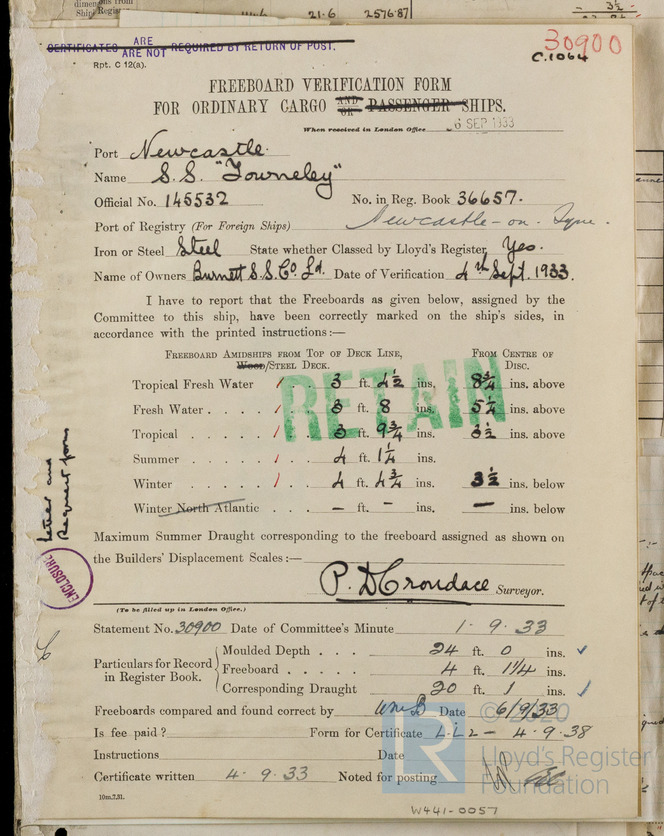 21·6 2576·87
3½
CERTIFICATES ARE / ARE NOT REQUIRED BY RETURN OF POST.
30900
C.1064
Rpt. C 12(a).
FREEBOARD VERIFICATION FORM
FOR ORDINARY CARGO AND/OR PASSENGER SHIPS.
When received in London Office 6 SEP 1933
Port Newcastle.
Name S.S. "Towneley"
Official No. 145532 No. in Reg. Book 36657.
Port of Registry (For Foreign Ships) Newcastle-on-Tyne.
Iron or Steel Steel State whether Classed by Lloyd's Register Yes.
Name of Owners Burnett S.S. Co. Ld. Date of Verification 4th Sept. 1933.
I have to report that the Freeboards as given below, assigned by the
Committee to this ship, have been correctly marked on the ship's sides, in
accordance with the printed instructions:—
FREEBOARD AMIDSHIPS FROM TOP OF DECK LINE, FROM CENTRE OF
WOOD/STEEL DECK. DISC.
RETAIN
Tropical Fresh Water 3 ft. 4½ ins. 8¾ ins. above
Fresh Water 3 ft. 8 ins. 5¼ ins. above
Tropical 3 ft. 9¾ ins. 3½ ins. above
Summer 4 ft. 1¼ ins.
Winter 4 ft. 4¾ ins. 3½ ins. below
Winter North Atlantic – ft. – ins. – ins. below
Letter and
Request form
ENCLOSURE
Maximum Summer Draught corresponding to the freeboard assigned as shown on
the Builders' Displacement Scales:—
P. D Crondace Surveyor.
(To be filled up in London Office.)
Statement No. 30900 Date of Committee's Minute 1. 9. 33
Particulars for Record in Register Book.
Moulded Depth 24 ft. 0 ins.
Freeboard 4 ft. 1¼ ins.
Corresponding Draught 20 ft. 1 ins.
Freeboards compared and found correct by Date 6/9/33
Is fee paid? Form for Certificate L.L 2 – 4.9.38
Instructions Date
Certificate written 4. 9. 33 Noted for posting
10m,7,31.
© 2020
LR
Lloyd's Register
Foundation
W441-0057